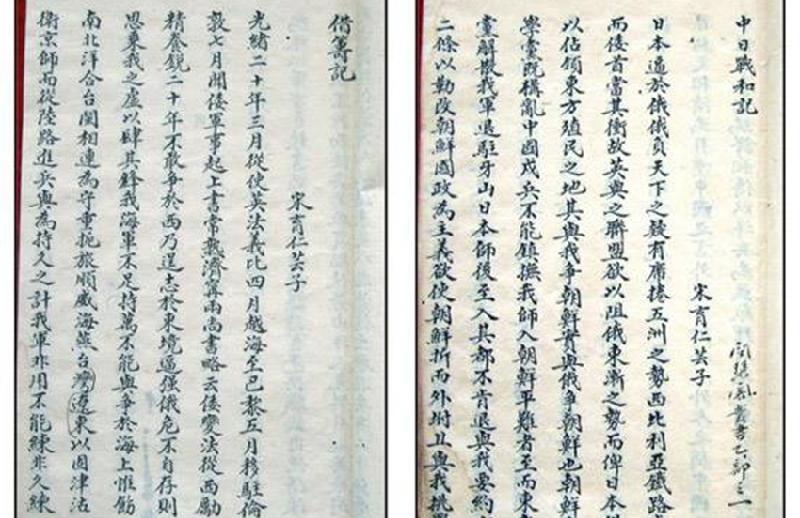 中日戰和記
問琴閣叢書乙部之一
宋育仁芸子
日本逼於俄俄負天下之㪅有席捲五洲之勢西比利亞鐵路
而倭首當其衝故英與之聯盟欲以阻俄東漸之勢而俾日本
以佔領東方殖民之地其與我爭朝鮮實與俄爭朝鮮也朝鮮
學黨既構亂中國戍兵不能鎮撫我師入朝鮮平難者至而東
黨解散我軍退駐牙山日本師後至入其都不肯退與我要約
二條以勤改朝鮮國政為主義欲使朝鮮折而外坿且與我挑
借箸記
宋育仁芸子
光緒二十年三月從使英法義比四月越海至巴黎五月移駐倫
敦七月聞倭軍事起上書常熟濟寧兩高書略云倭變法從西勵
精養銳二十年不敢爭於西乃逞志於東境逼強俄危不自存則
思乘我之虛以肆其鋒我海軍不足持萬不能與爭於海上惟飭
南北洋合台閩相連為守重扼旅順威海燕台灣遼東以固津沽
衛京師而從陸路進兵與為持久之計我軍非用不能練非久練